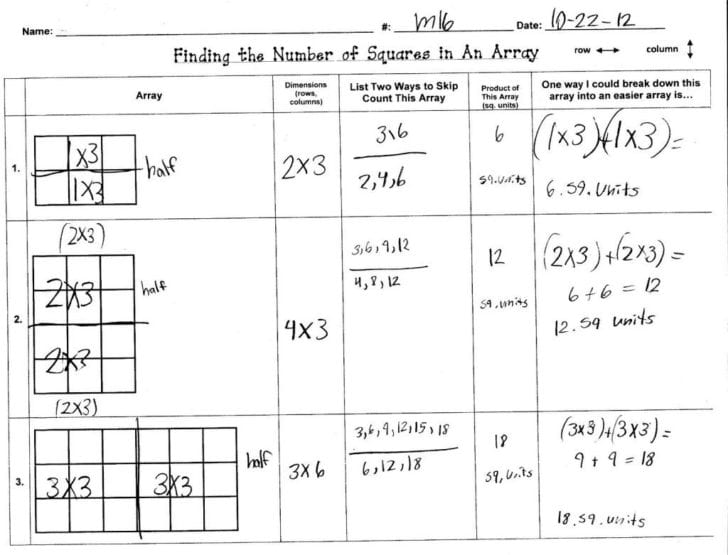 Name: #: M16 Date: 10-22-12
Finding the Number of Squares in An Array row column
Array
Dimensions
(rows,
columns)
List Two Ways to Skip
Count This Array
Product of
This Array
(sq. units)
One way I could break down this
array into an easier array is...
1.
1x3
1x3
half
2x3
3,6
2,4,6
6
sq.units
(1x3)+(1x3)=
6.sq.units
2.
(2x3)
2x3
2x3
(2x3)
half
4x3
3,6,9,12
4,8,12
12
sq.units
(2x3)+(2x3)=
6+6=12
12.sq units
3.
3x3 3x3
half
3x6
3,6,9,12,15,18
6,12,18
18
sq,units
(3x3)+(3x3)=
9+9=18
18.sq.units